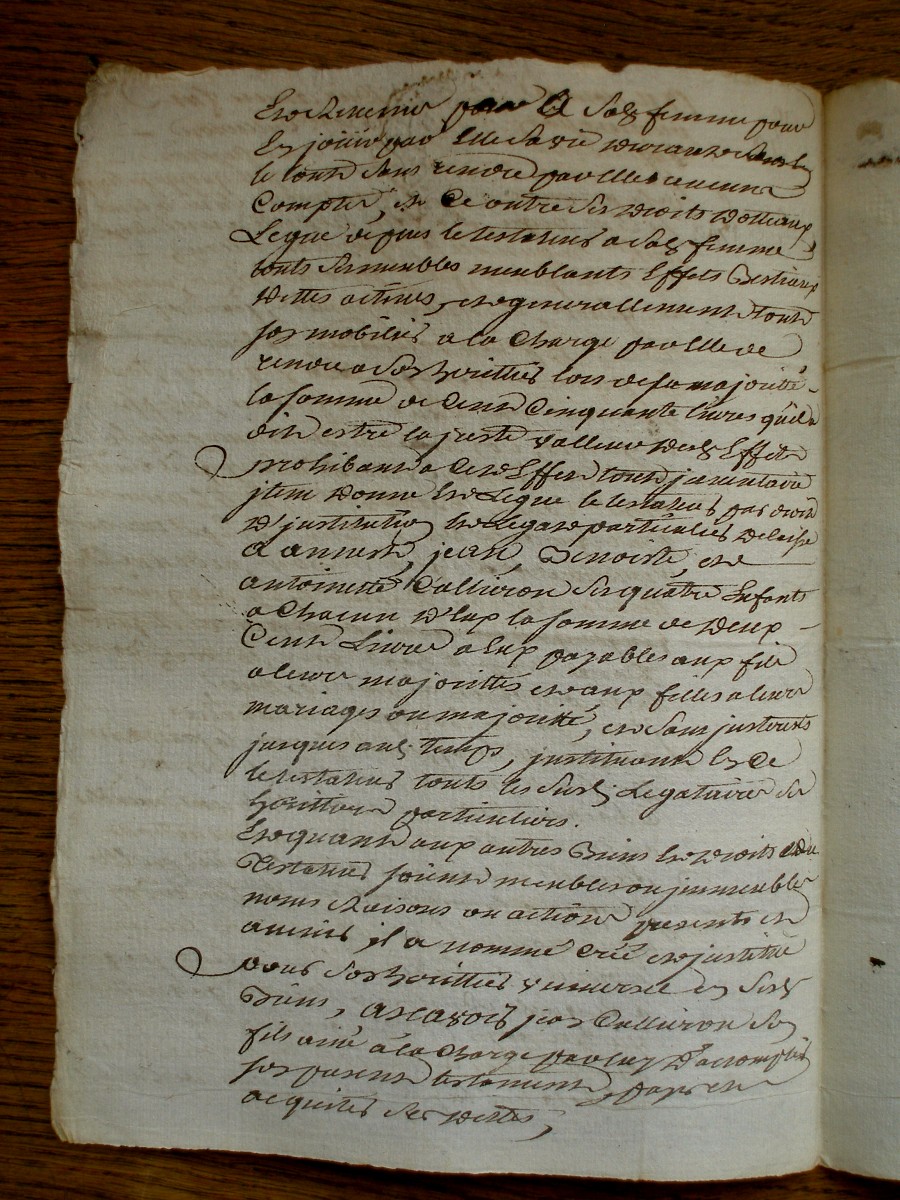 et revenir pour a sad femme pour
en jouir par elle sa vie durant sans la
le tout sans rendre par elle aucun
compte, et ce outre ses droits dotteaux
Legue de plus le testateur a sad femme
touts ses meubles meublants Effets Bestiaux
dettes actives, et generallement tout
son mobilier a la charge par elle de
rendre a son heritier lors de sa majoritté
la somme de Cent Cinquante livres qu'il a
dit estre la juste valleur desd Effets
prohibant a cet Effet tout jnventaire
jtem donne et Legue le testateur par droit
d'jnstitution et Legat particulier delaisse
a annest, jean, Benoiste, et
antoinette Callieron ses quatre Enfants
a chacun d'Eux la somme de deux
Cent Livres a Eux payables aux fils
a leur majorittes et aux filles a leur
mariages ou majoritté, et sans jnterests
jusques aud temps, jnstituant En ce
le testateur touts les susd Legataires ses
heritiers particuliers.
Et quant aux autres Biens et droits dud
Testateur soient meubles ou jmmeubles
noms raisons ou actions presents et
avenir il a nomme créé et jnstitué
pour son heritier universel en sesd
Biens, ascavoir jean Callieron son
fils ainé a la charge par luy d'accomplir
son present testament, payer et
acquiter ses dettes,